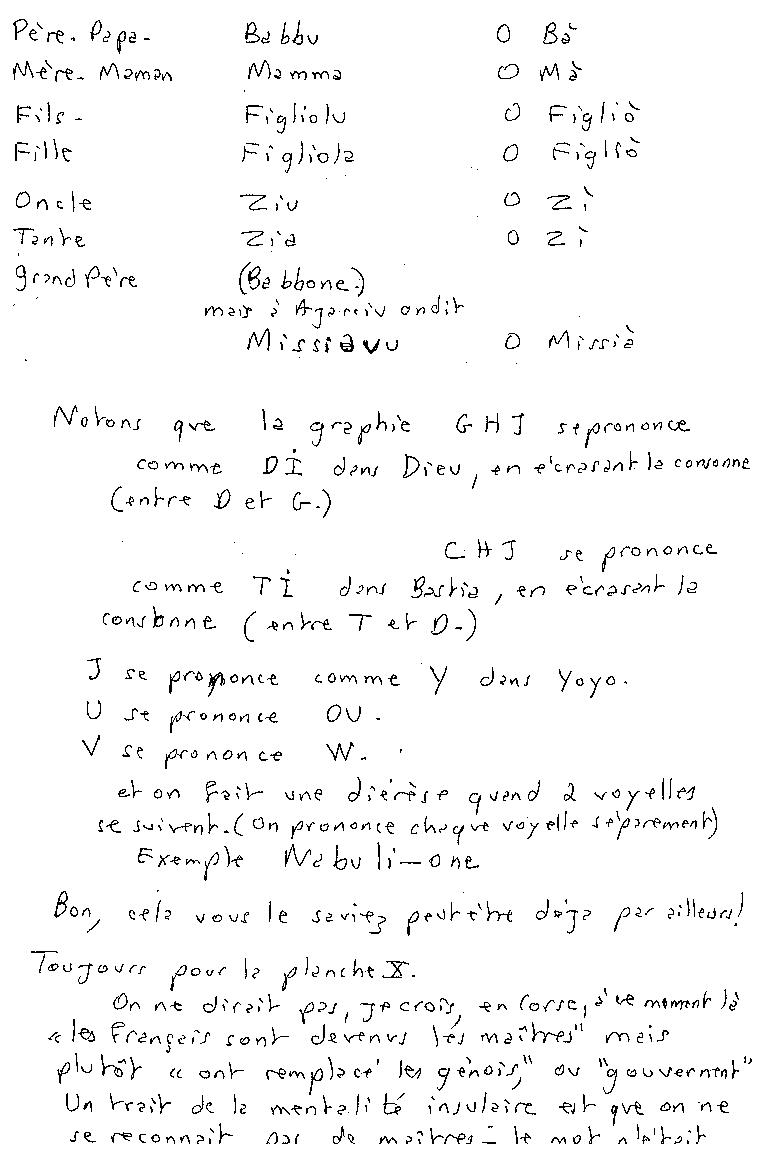 Père. Papa- Babbu O Bà
Mère- Maman Mamma O Mà
Fils- Figliolu O Figliò
Fille Figliola O Figliò
Oncle Ziu O Zì
Tante Zia O Zì
Grand Père (Babbone.)
mais à Ajacciu on dit
Missiavu O Missià
Notons que la graphie GHJ se prononce
comme DI dans Dieu, en écrasant la consonne
(entre D et G.)
CHJ se prononce
comme TI dans Bastia, en écrasant la
consonne (entre T et D-)
J se prononce comme Y dans Yoyo.
U se prononce OU.
V se prononce W.
et on fait une diérèse quand 2 voyelles
se suivent. (On prononce chaque voyelle séparement)
Exemple Nabuli-one
Bon, cela vous le saviez peut être déja par ailleurs!
Toujours pour la planche X.
On ne dirait pas, je crois, en Corse, à ce moment là
« les français sont devenus les maîtres" mais
plutôt « ont remplacé les génois," ou "gouvernent"
Un trait de la mentalité insulaire est que on ne
se reconnait pas de maîtres - le mot n'était